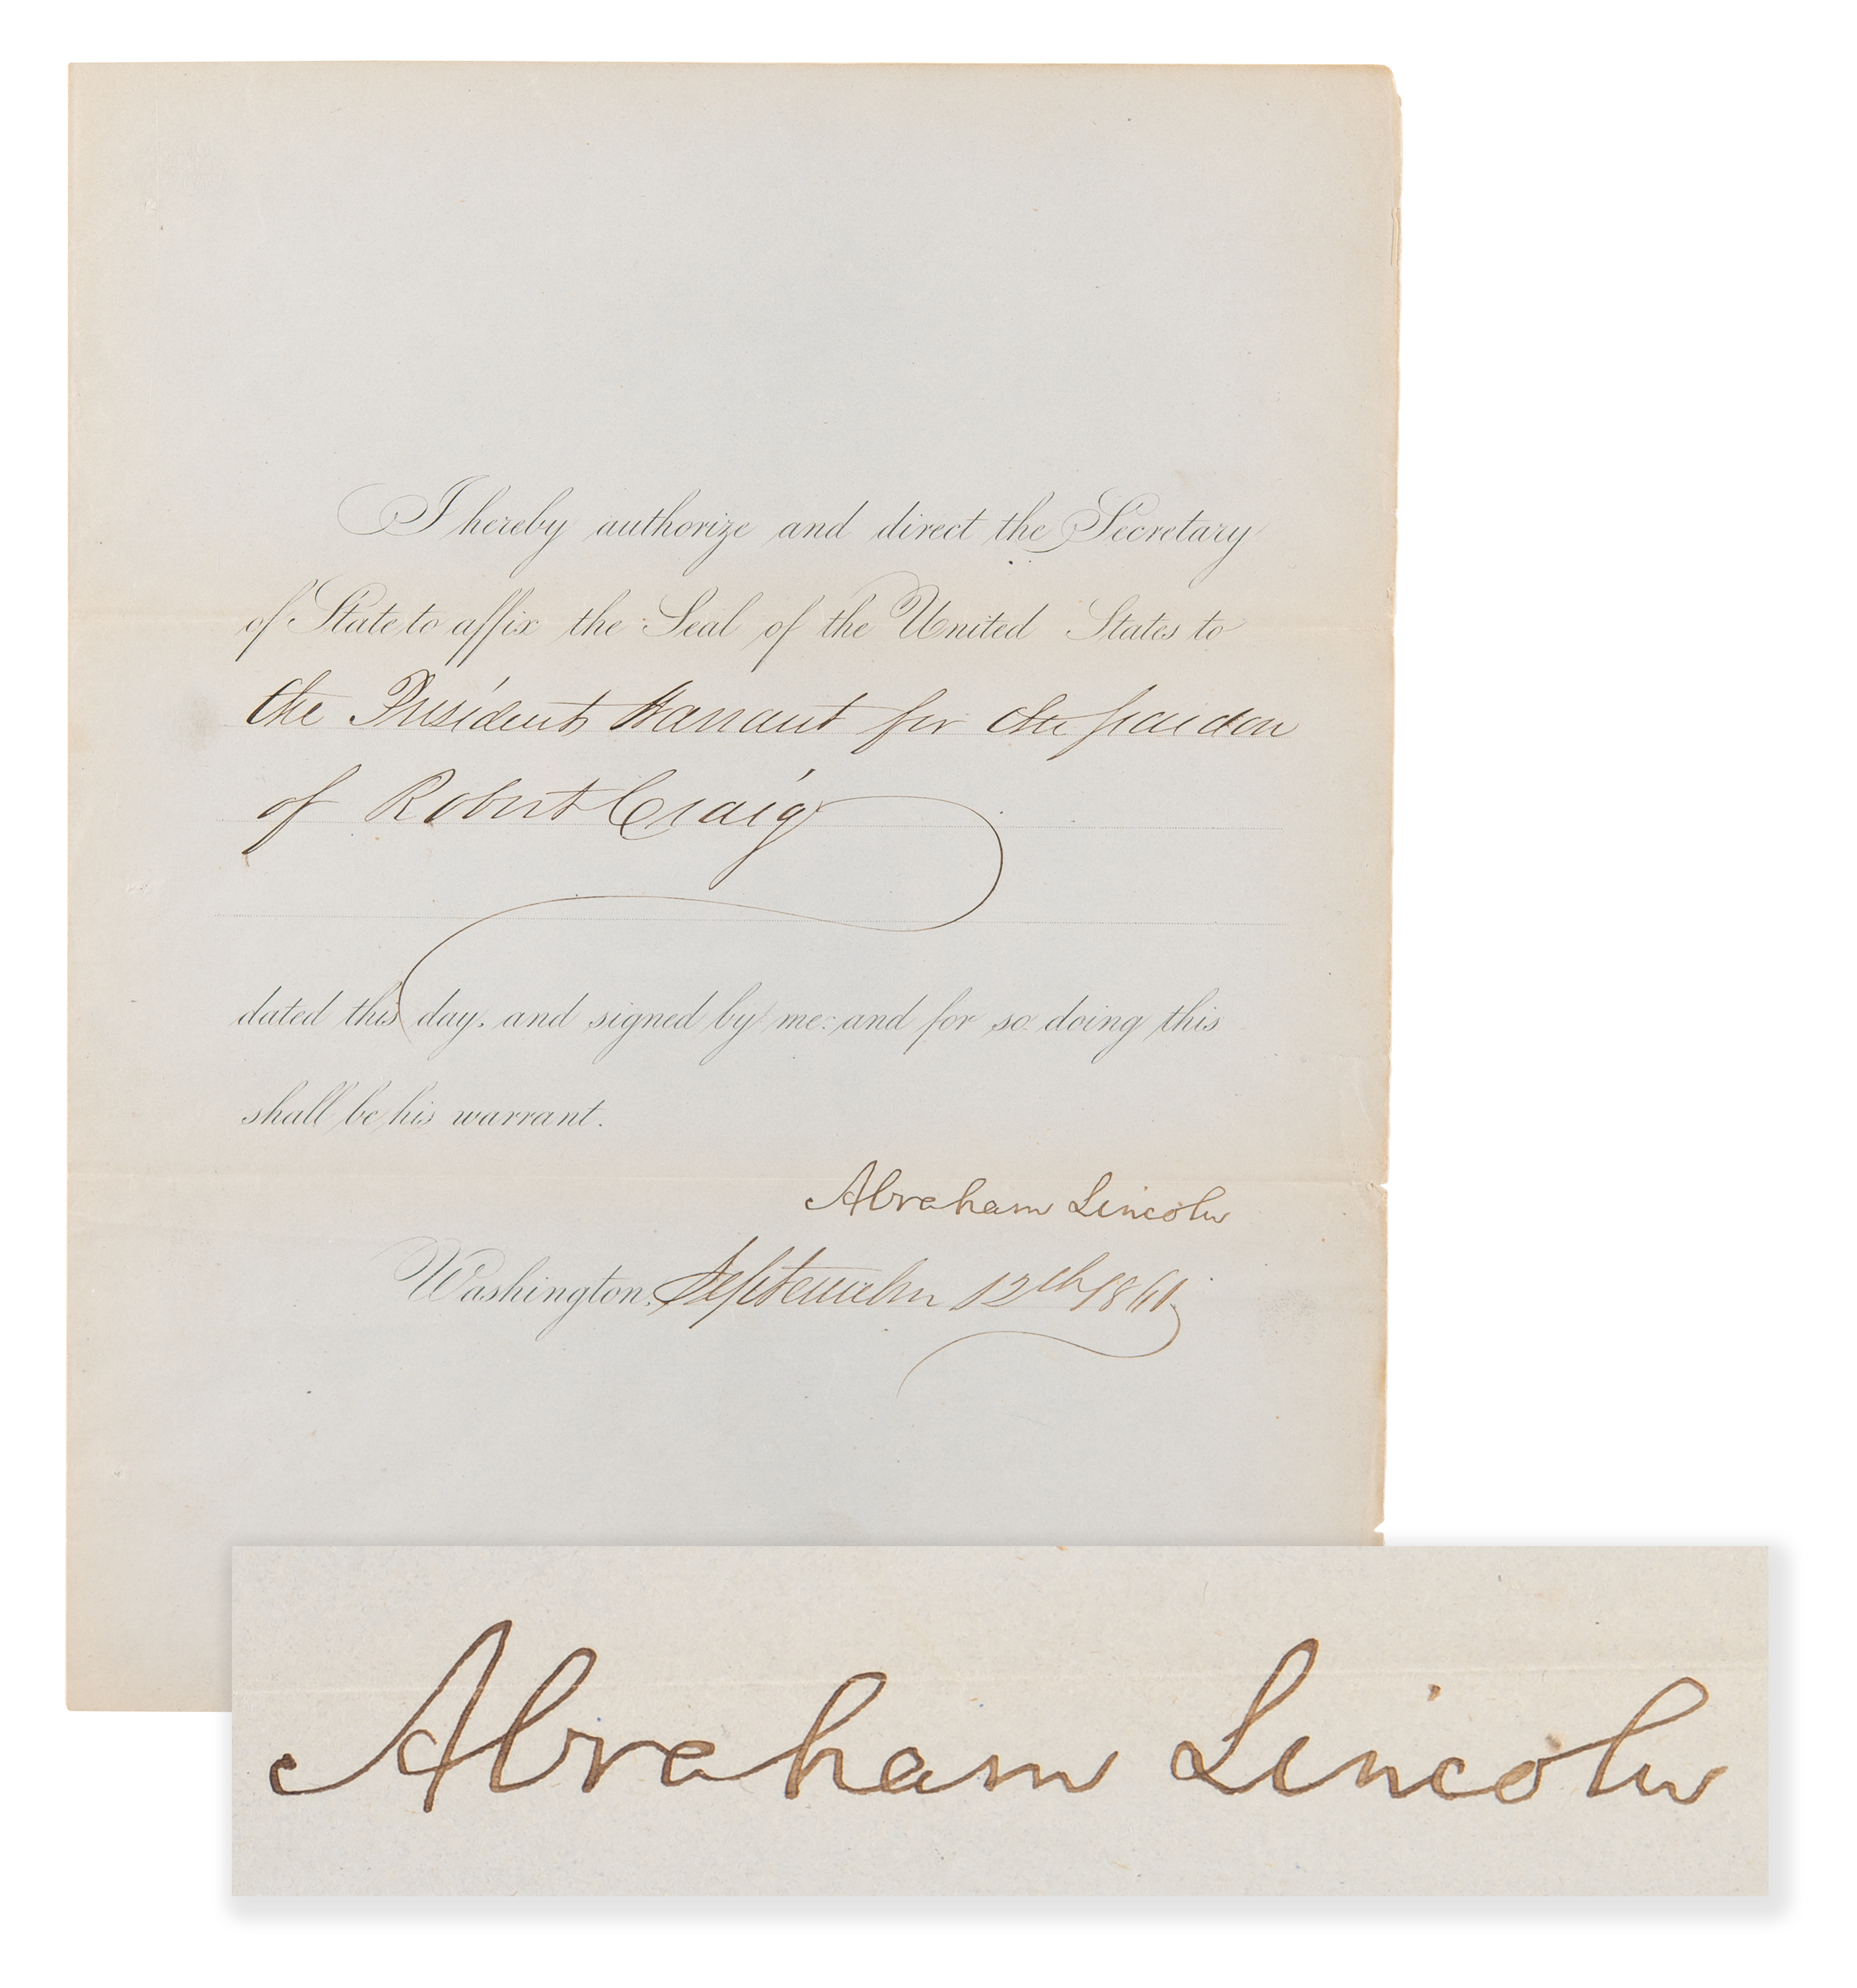 I hereby authorize and direct the Secretary
of State to affix the Seal of the United States to
the Presidents Warrant for the pardon
of Robert Craig
dated this day, and signed by me: and for so doing this
shall be his warrant.
Abraham Lincoln
Washington, September 12th 1861.
Abraham Lincoln